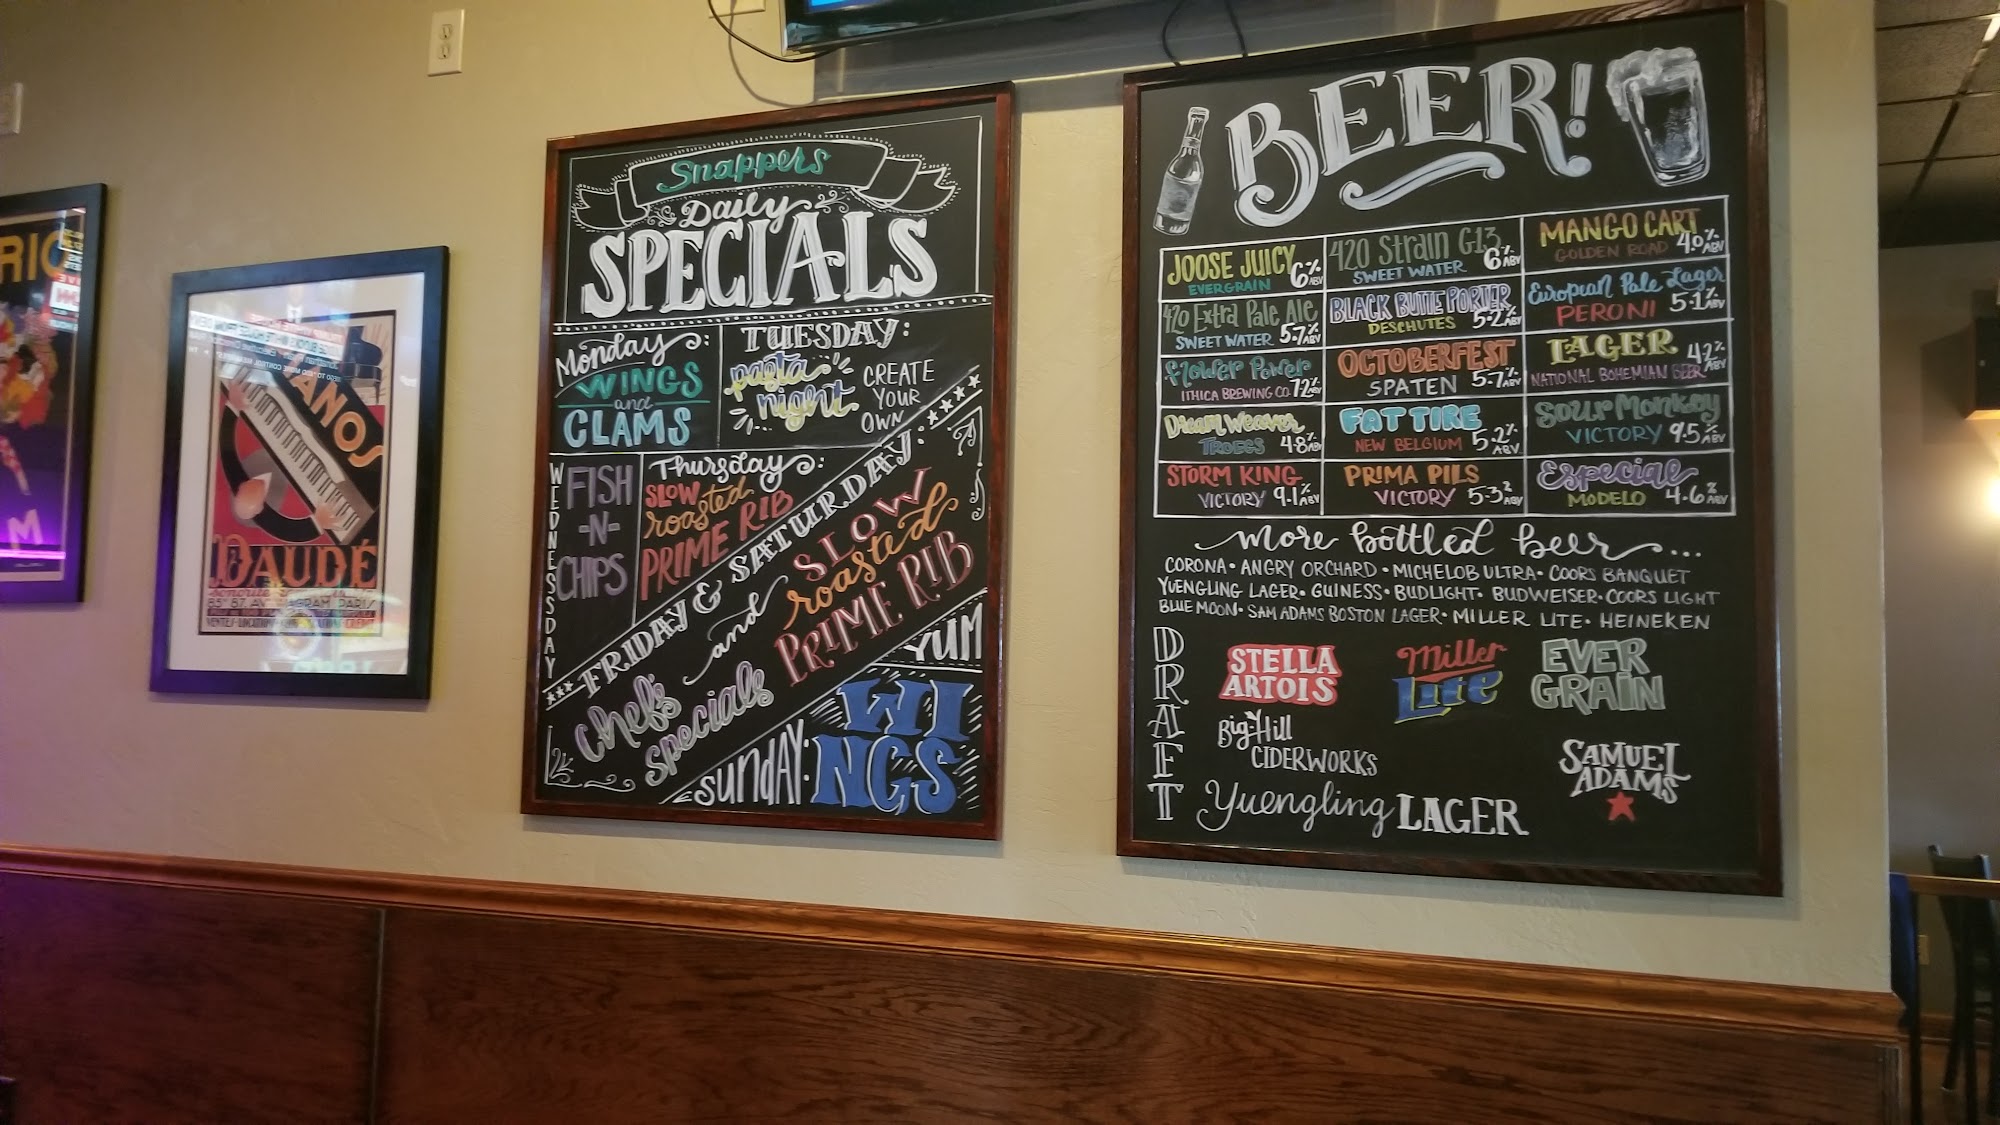 RIC
M
PIANOS
DAUDÉ
Snappers
Daily
SPECIALS
Monday:
WINGS
and
CLAMS
TUESDAY:
pasta
night
CREATE
YOUR
OWN
WEDNESSDAY
FISH
-N-
CHIPS
Thursday:
SLOW
roasted
PRIME RIB
FRIDAY & SATURDAY:
Chef's
specials
and
SLOW
roasted
PRIME RIB
YUM
SUNDAY:
WI
NGS
BEER!
JOOSE JUICY
EVERGRAIN 6% ABV
420 Strain G13
SWEET WATER 6% ABV
MANGO CART
GOLDEN ROAD 4.0% ABV
420 Extra Pale Ale
SWEET WATER 5.7% ABV
BLACK BUTTE PORTER
DESCHUTES 5.2% ABV
European Pale Lager
PERONI 5.1% ABV
Flower Power
ITHICA BREWING CO. 7.2% ABV
OCTOBERFEST
SPATEN 5.7% ABV
LAGER
NATIONAL BOHEMIAN BEER 4.2% ABV
Dream Weaver
TROEGS 4.8% ABV
FAT TIRE
NEW BELGIUM 5.2% ABV
Sour Monkey
VICTORY 9.5% ABV
STORM KING
VICTORY 9.1% ABV
PRIMA PILS
VICTORY 5.3% ABV
Especial
MODELO 4.6% ABV
more bottled beer...
CORONA • ANGRY ORCHARD • MICHELOB ULTRA • COORS BANQUET
YUENGLING LAGER • GUINESS • BUDLIGHT • BUDWEISER • COORS LIGHT
BLUE MOON • SAM ADAMS BOSTON LAGER • MILLER LITE • HEINEKEN
DRAFT
STELLA
ARTOIS
Miller
Lite
EVER
GRAIN
Big Hill
CIDERWORKS
SAMUEL
ADAMS
Yuengling LAGER